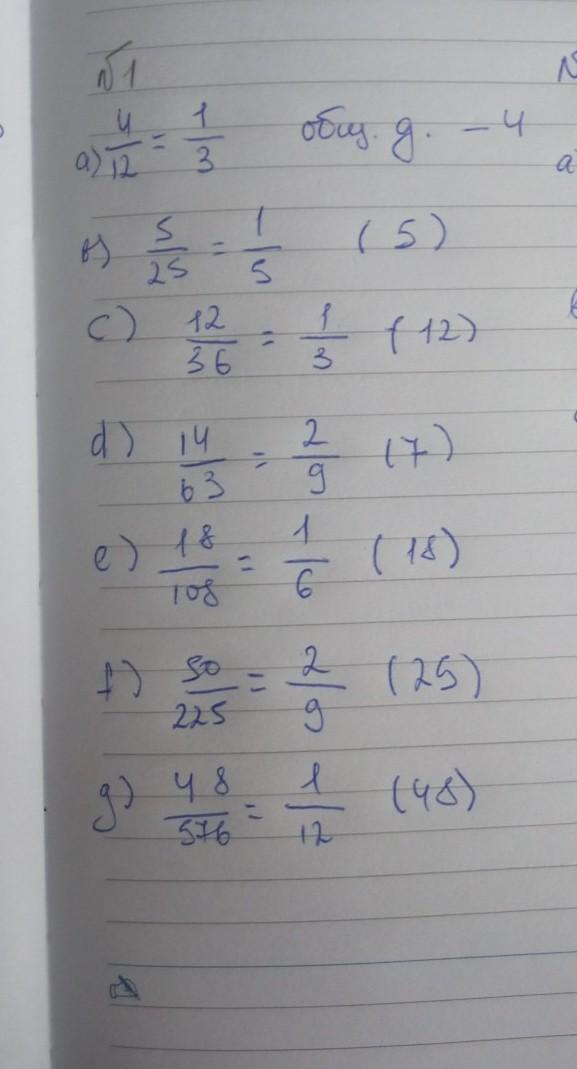 №1
а) 4/12 = 1/3 общ. д. – 4
в) 5/25 = 1/5 (5)
c) 12/36 = 1/3 (12)
d) 14/63 = 2/9 (7)
e) 18/108 = 1/6 (18)
f) 50/225 = 2/9 (25)
g) 48/576 = 1/12 (48)
N
a